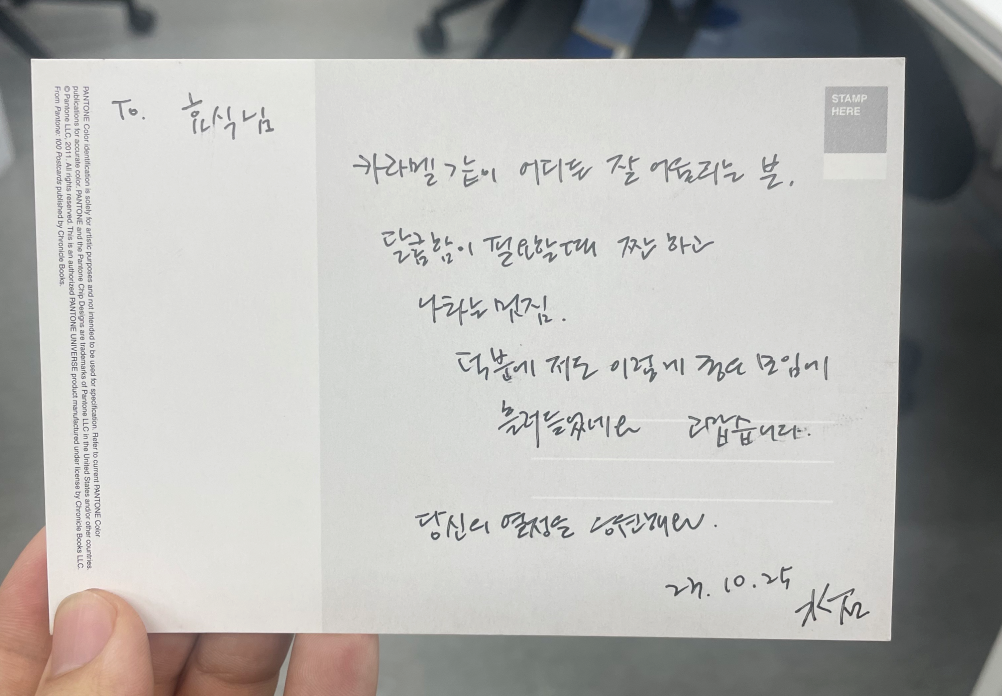 To. 효식님
카라멜 같이 어디든 잘 어울리는 분.
달콤함이 필요할때 짠 하고
나타는 멋짐.
덕분에 저도 이렇게 모임에
흘러들었네요 고맙습니다.
당신의 열정을 응원해요.
23. 10. 25
STAMP
HERE
PANTONE Color identification is solely for artistic purposes and not intended to be used for specification. Refer to current PANTONE Color
publications for accurate color. PANTONE and the Pantone Chip Designs are trademarks of Pantone LLC in the United States and/or other countries.
© Pantone LLC, 2011. All rights reserved. This is an authorized PANTONE UNIVERSE product manufactured under license by Chronicle Books LLC.
From Pantone: 100 Postcards published by Chronicle Books.